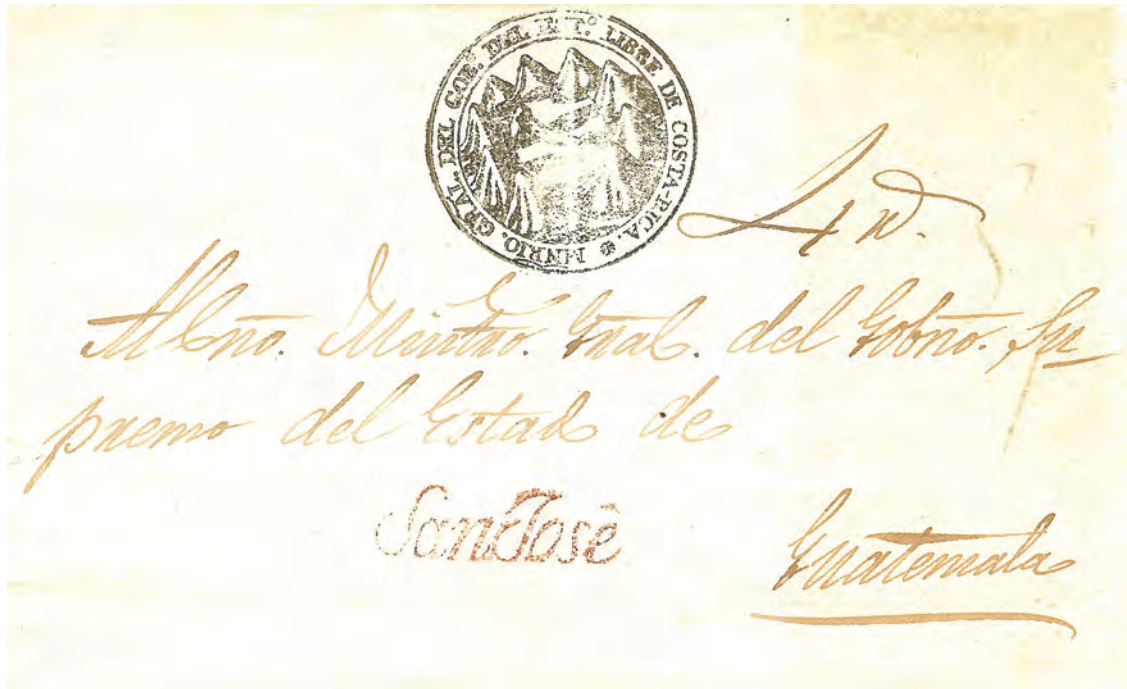 MNRIO. GRAL. DEL GOB. DEL EST.º LIBRE DE COSTA-RICA.
Al Sño. Mintro. Gral. del Gobno. Su
premo del Estado de
San José
Guatemala